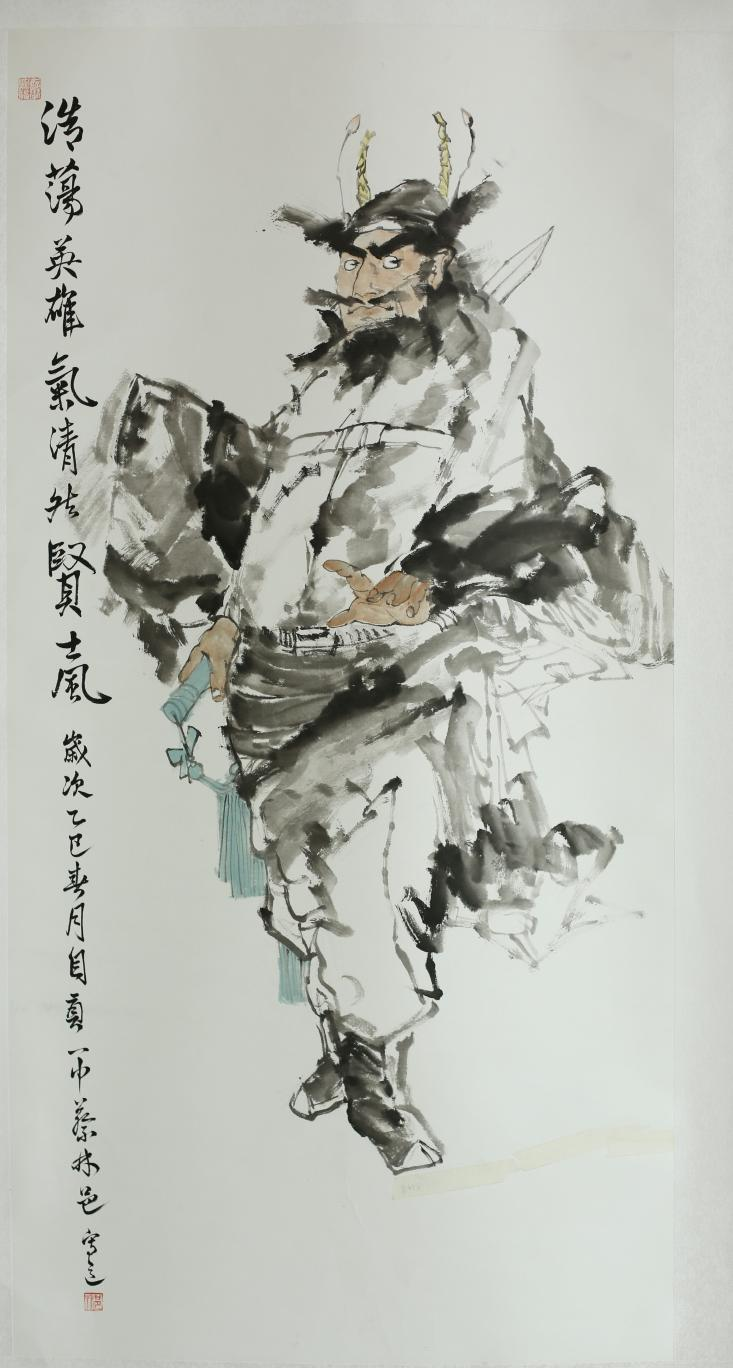 浩蕩英雄氣清然賢士風
歲次乙巳春月自貢一市蔡林邑寫意